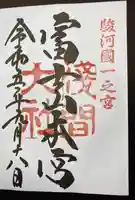 駿河國一之宮
富士山本宮
浅間
大社
令和五年六月十八日